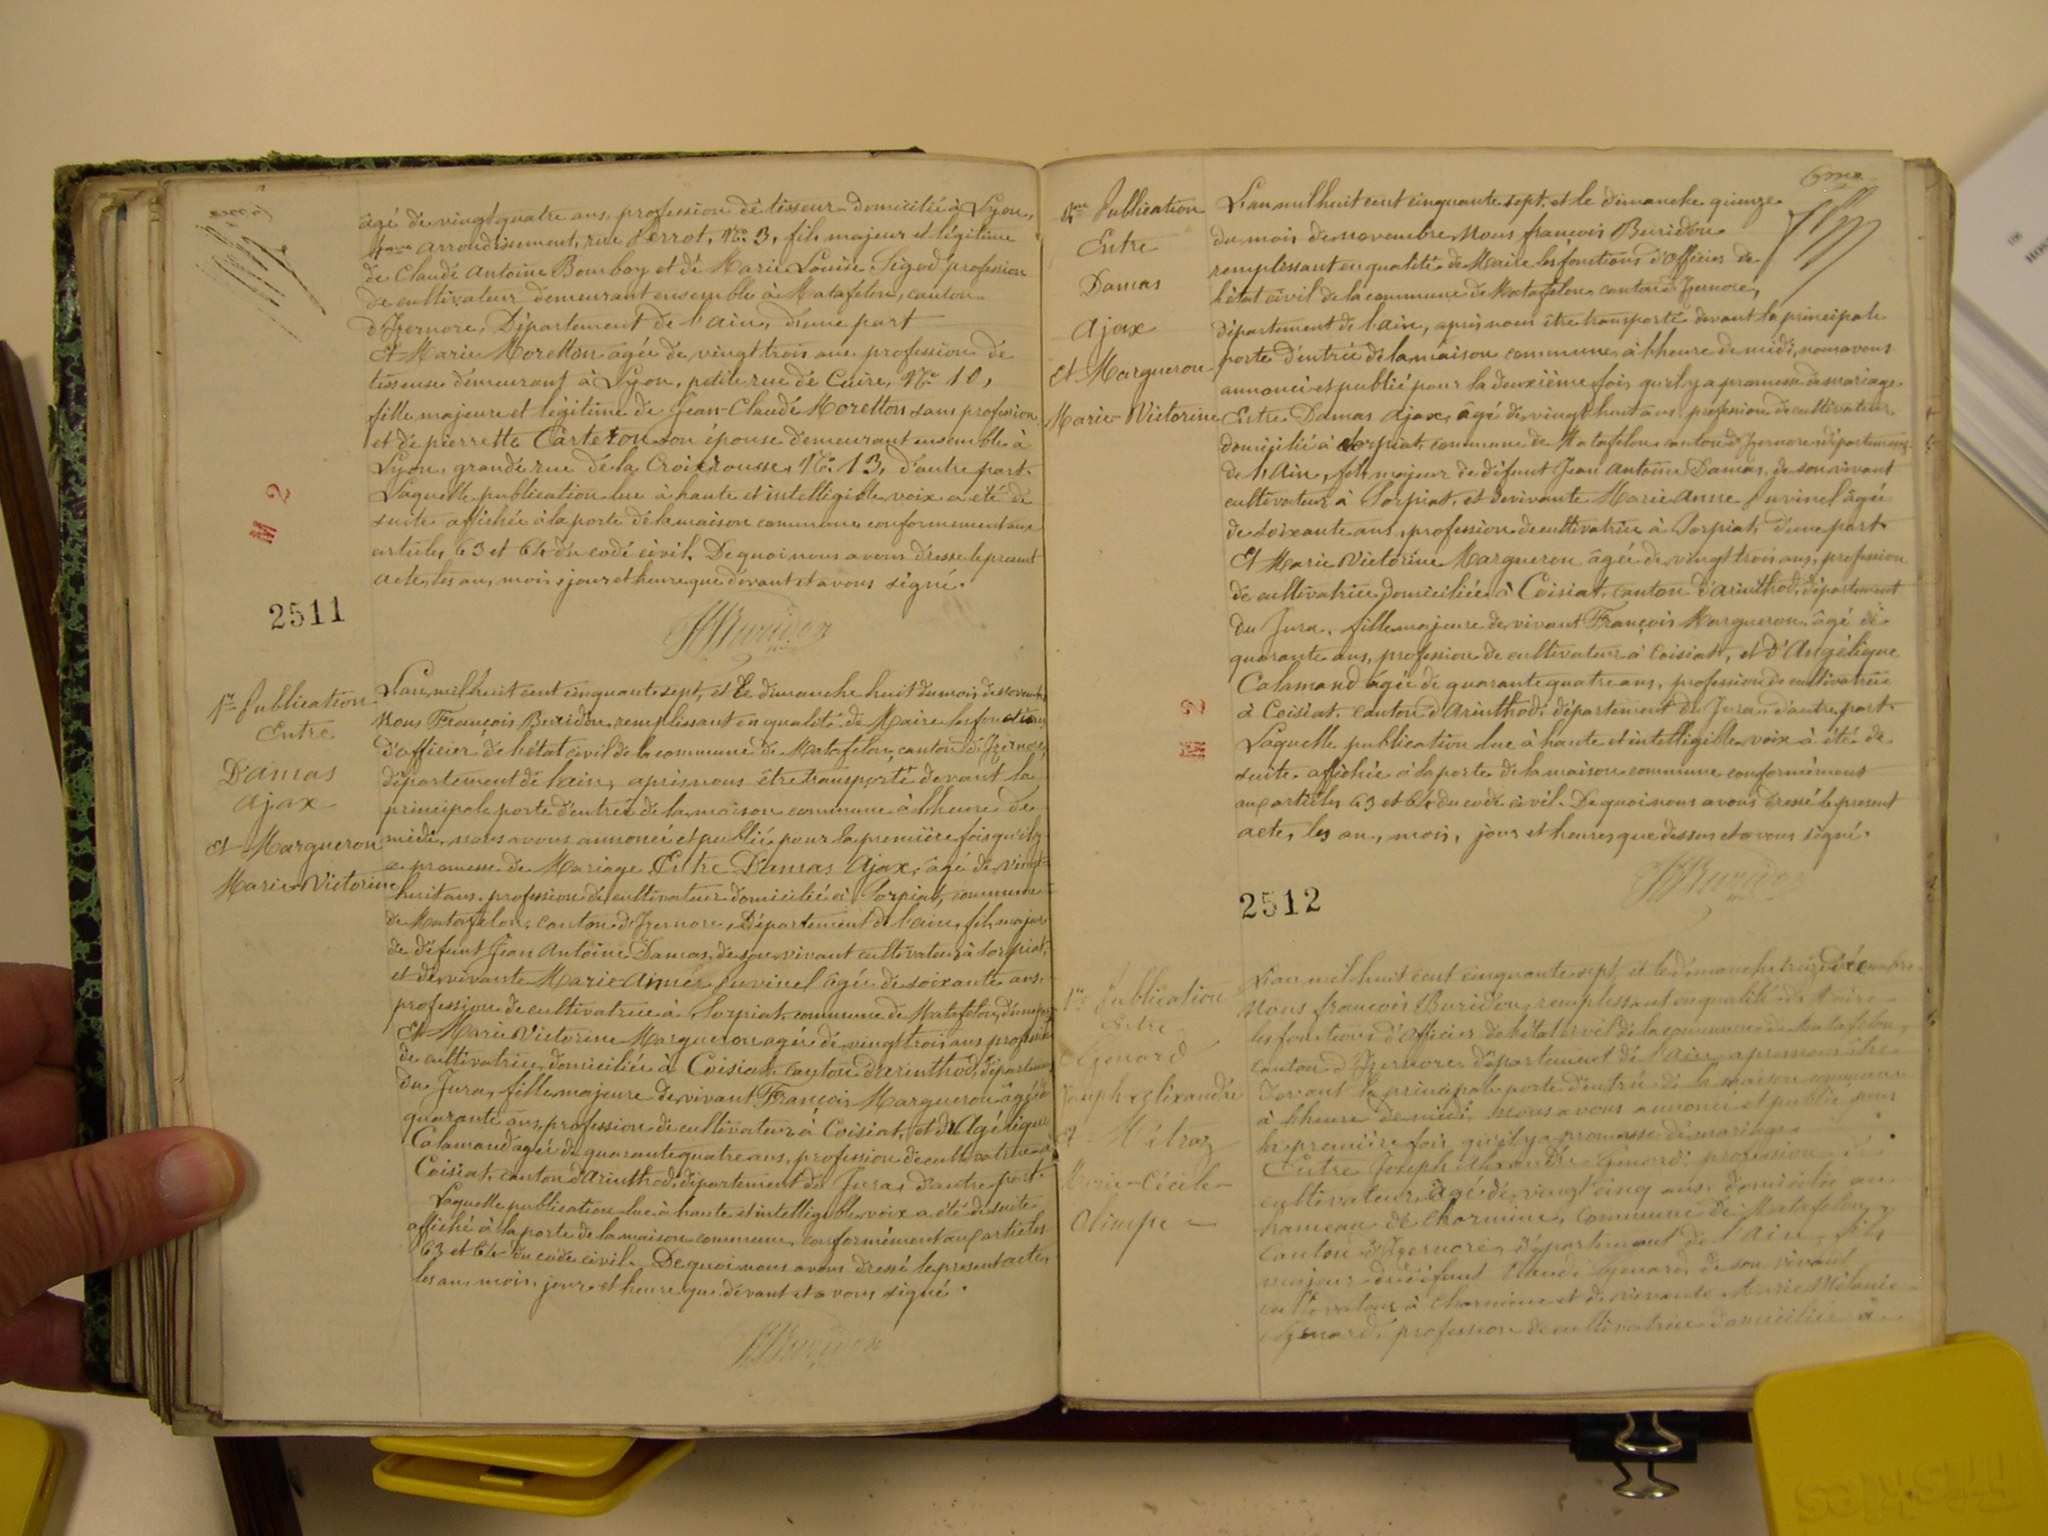 âgé de vingt quatre ans, profession de tisseur domicilié à Lyon,
arrondissement, rue Perrot, No 3, fils majeur et légitime
de Claude Antoine Bomboy et de Marie Louise Sigod profession
de cultivateur demeurant ensemble à Matafelon, canton
d'Izernore, Département de l'ain, d'une part
Et Marie Moretton âgée de vingt trois ans profession de
tisseuse demeurant à Lyon, petite rue de Cuire, No 10,
fille majeure et légitime de Jean-Claude Moretton sans profession
et de pierrette Carteron son épouse demeurant ensemble à
Lyon, grande rue de la Croix rousse, No 13, d'autre part.
Laquelle publication lue à haute et intelligible voix a été de
suite affichée à la porte de la maison commune conformément aux
articles 63 et 64 du code civil. De quoi nous avons dressé le présent
acte, les an, mois, jour et heure que devant et avons signé.
M 2
2511
FBuridon
1re Publication
Entre
Damas
Ajax
et Margueron
Marie-Victorine
L'an mil huit cent cinquante sept, et le dimanche huit du mois de novembre
Nous François Buridon, remplissant en qualité de Maire les fonctions
d'officier de l'état civil de la commune de Matafelon, canton d'Izernore,
département de l'ain, après nous être transporté devant la
principale porte d'entrée de la maison commune à l'heure de
midi, nous avons annoncé et publié pour la première fois qu'il y
a promesse de Mariage Entre Damas Ajax, âgé de vingt
huit ans, profession de cultivateur domicilié à Corpiat, commune
de Matafelon, canton d'Izernore, Département de l'ain, fils majeur
de défunt Jean Antoine Damas, de son vivant cultivateur à Corpiat,
et de vivante Marie Aimée Juvinel âgée de soixante ans,
profession de cultivatrice à Corpiat commune de Matafelon, d'une part
Et Marie Victorine Margueron agée de vingt trois ans profession
de cultivatrice, domiciliée à Coisiat, canton d'arinthod, département
du Jura, fille majeure de vivant François Margueron âgé de
quarante ans, profession de cultivateur à Coisiat, et d'Agélique
Calamand agée de quarante quatre ans, profession de cultivatrice à
Coisiat, canton d'Arinthod, département du Jura, d'autre part.
Laquelle publication lue à haute et intelligible voix a été de suite
affiché à la porte de la maison commune, conformément aux articles
63 et 64 du code civil. De quoi nous avons dressé le présent acte,
les an, mois, jour et heure que devant et avons signé.
FBuridon
Publication
Entre
Damas
Ajax
et Margueron
Marie-Victorine
L'an mil huit cent cinquante sept, et le dimanche quinze
du mois de novembre Nous françois Buridon
remplissant en qualité de Maire les fonctions d'officier de
l'état civil de la commune de Matafelon, canton d'Izernore,
département de l'ain, après nous être transporté devant la principale
porte d'entrée de la maison commune, à l'heure de midi, nous avons
annoncé et publié pour la deuxième fois, qu'il y a promesse de mariage
Entre Damas Ajax, âgé de vingt huit ans, profession de cultivateur,
domicilié à Corpiat, commune de Matafelon, canton d'Izernore, département
de l'Ain, fils majeur de défunt Jean Antoine Damas, de son vivant
cultivateur à Corpiat, et de vivante Marie Anne Juvinel âgée
de soixante ans, profession de cultivatrice à Corpiat, d'une part.
Et Marie Victorine Margueron âgée de vingt trois ans, profession
de cultivatrice domiciliée à Coisiat, canton d'arinthod, département
du Jura, fille majeure de vivant François Margueron, âgé de
quarante ans, profession de cultivateur à Coisiat, et d'Angélique
Calamand âgée de quarante quatre ans, profession de cultivatrice
à Coisiat, canton d'Arinthod, département du Jura, d'autre part.
Laquelle publication lue à haute et intelligible voix a été de
suite affichée à la porte de la maison commune conformément
aux articles 63 et 64 du code civil. De quoi nous avons dressé le present
acte, les an, mois, jour et heure que dessus et avons signé.
M 2
FBuridon
2512
1re Publication
Entre
Genard
Joseph Alixandre
et Métraz
Marie-Cécile
Olimpe
L'an mil huit cent cinquante sept, et le dimanche treize décembre
Nous françois Buridon, remplissant en qualité de Maire
les fonctions d'officier de l'état civil de la commune de Matafelon,
canton d'Izernore, département de l'ain, après nous être
devant la principale porte d'entrée de la maison commune
à l'heure de midi, nous avons annoncé et publié pour
la première fois qu'il y a promesse de mariage
Entre Joseph Alixandre Genard, profession de
cultivateur, âgé de vingt cinq ans, domicilié au
hameau de Charmine, commune de Matafelon,
canton d'Izernore, département de l'Ain, fils
majeur de défunt Claude Genard, de son vivant
cultivateur à Charmine et de vivante Marie Mélanie
Genard, profession de cultivatrice domiciliée à